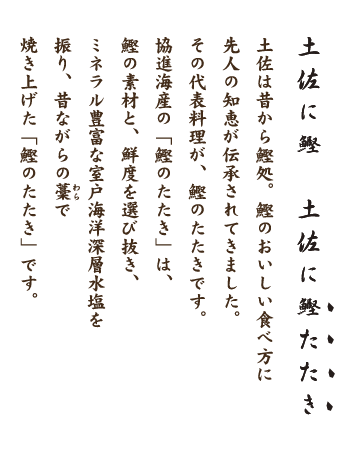 土佐に鰹　土佐に鰹たたき
土佐は昔から鰹処。鰹のおいしい食べ方に
先人の知恵が伝承されてきました。
その代表料理が、鰹のたたきです。
協進海産の「鰹のたたき」は、
鰹の素材と、鮮度を選び抜き、
ミネラル豊富な室戸海洋深層水塩を
振り、昔ながらの藁わらで
焼き上げた「鰹のたたき」です。